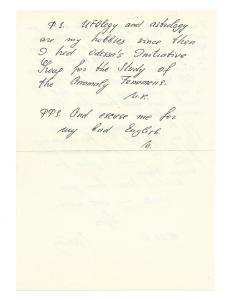 P.S. Ufology and astrology
are my hobbies since then
I head Odessa's Initiative
Group for the Study of
the Anomaly Fenomens.
V.K.
PPS And excuse me for
my bad English
V.